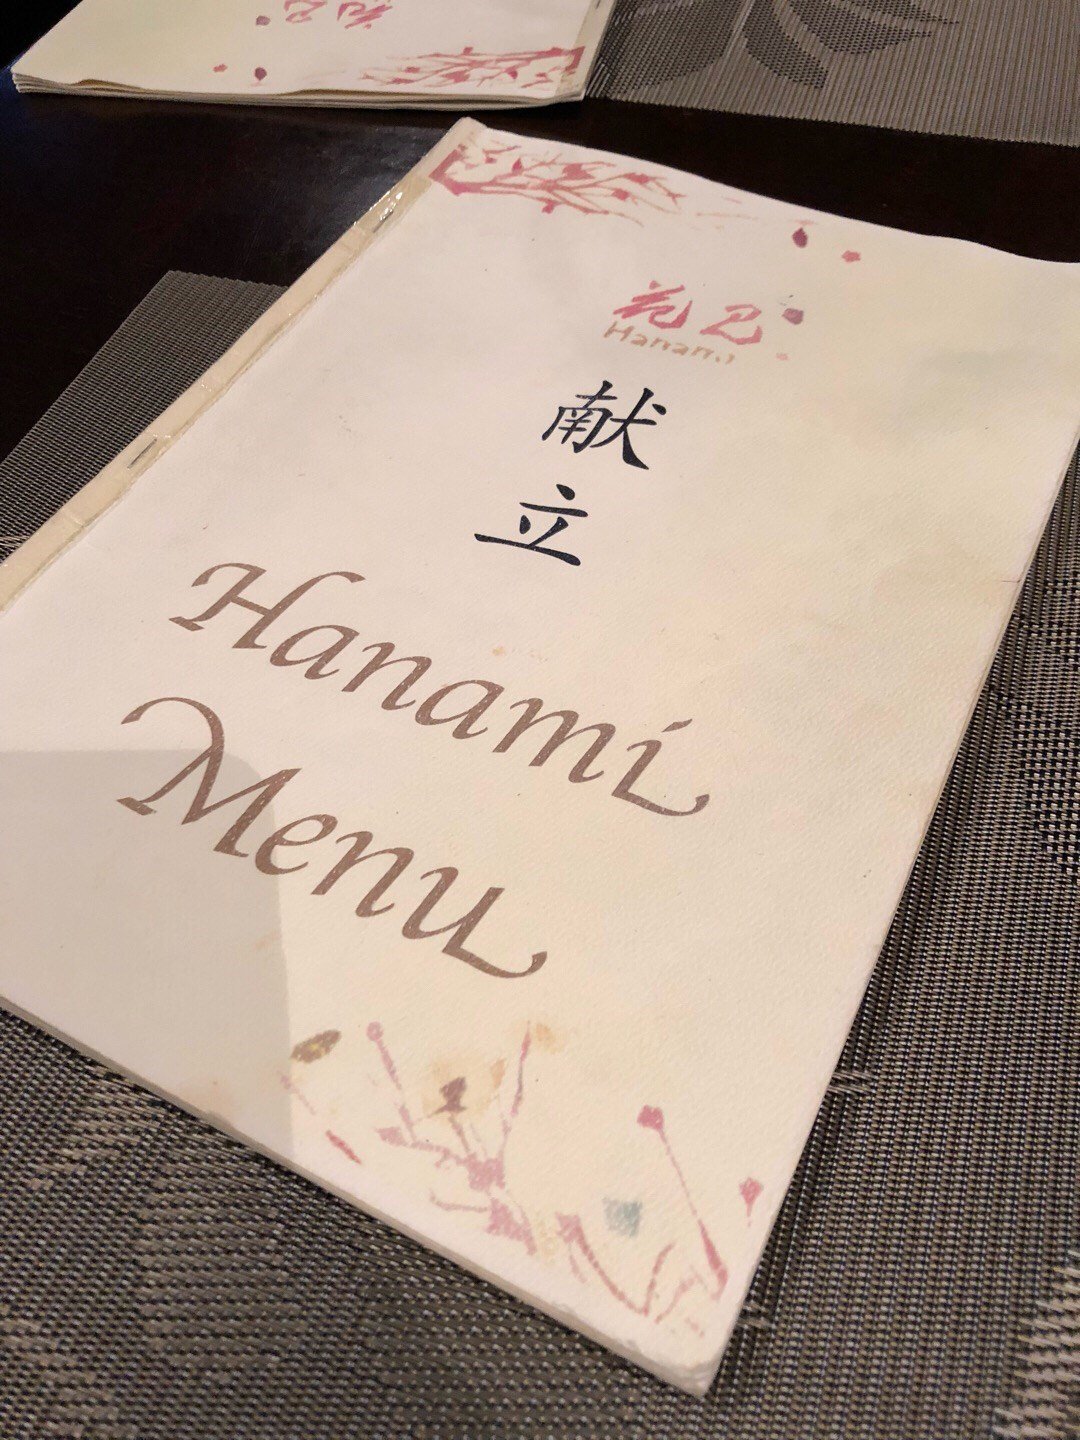 花見
Hanami
献
立
Hanami
Menu